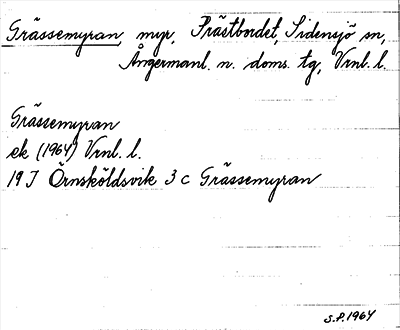 Grässemyran, myr, Prästbordet, Sidensjö sn,
Ångermanl. n. doms. tg, Vrnl. l.
Grässemyran
ek (1964) Vrnl. l.
19 J Örnsköldsvik 3 c Grässemyran
S.P. 1964